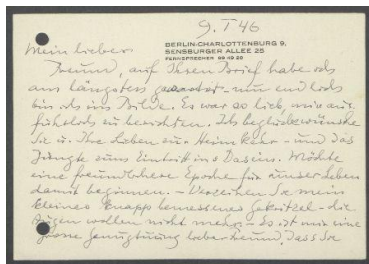 9. I 46
BERLIN-CHARLOTTENBURG 9,
SENSBURGER ALLEE 25
FERNSPRECHER 99 49 25
Mein lieber
Freund, auf Ihren Brief habe ich
am längsten gewartet - nun endlich
bin ich im Bilde. Es war so lieb, mir aus-
führlich zu berichten. Ich beglückwünsche
Sie u. Ihre Lieben zur Heimkehr - und das
Jüngste zum Eintritt ins Dasein. Möchte
eine freundlichere Epoche für unser Leben
damit beginnen. - Verzeihen Sie mein
kleines knapp bemessenes Gekritzel - die
Augen wollen nicht mehr. - Es ist mir eine
grosse Genugtuung lieber Freund, dass Sie